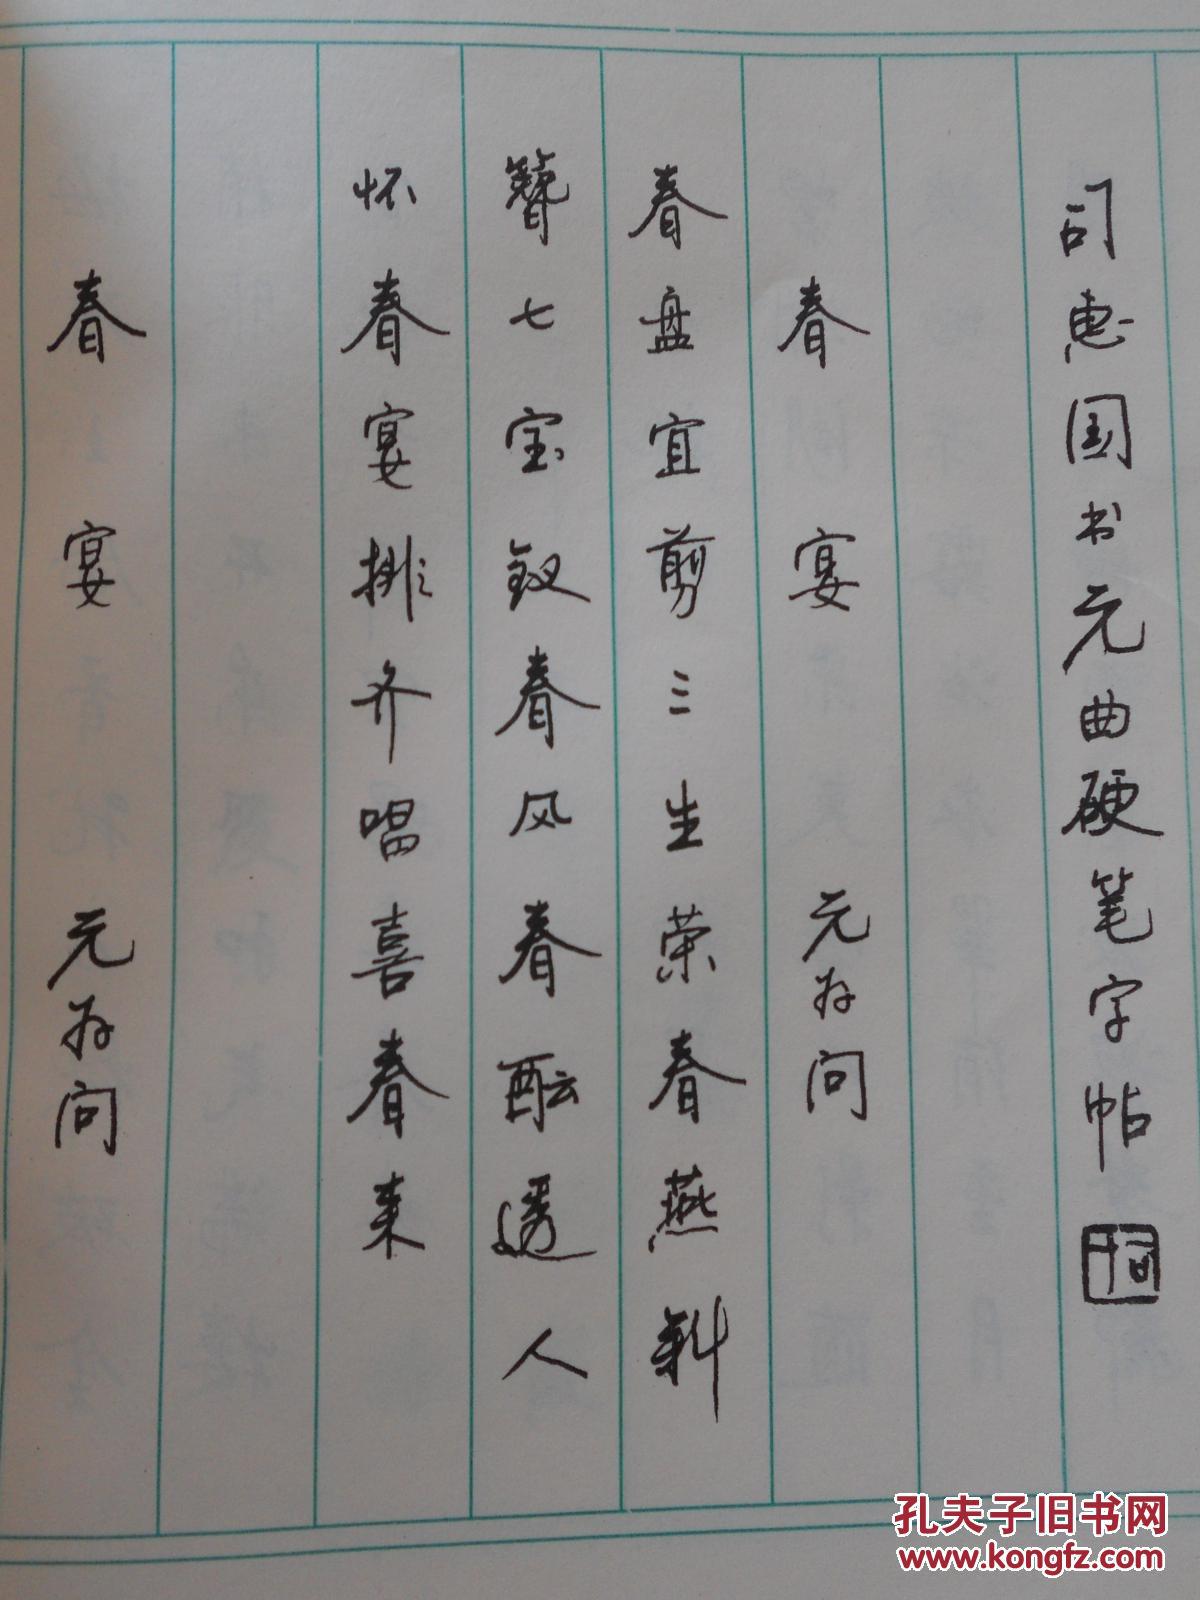 司惠国书元曲硬笔字帖
春宴 元好问
春盘宜剪三生菜春燕斜
簪七宝钗春风春酝透人
怀春宴排齐唱喜春来
春宴 元好问
孔夫子旧书网
www.kongfz.com